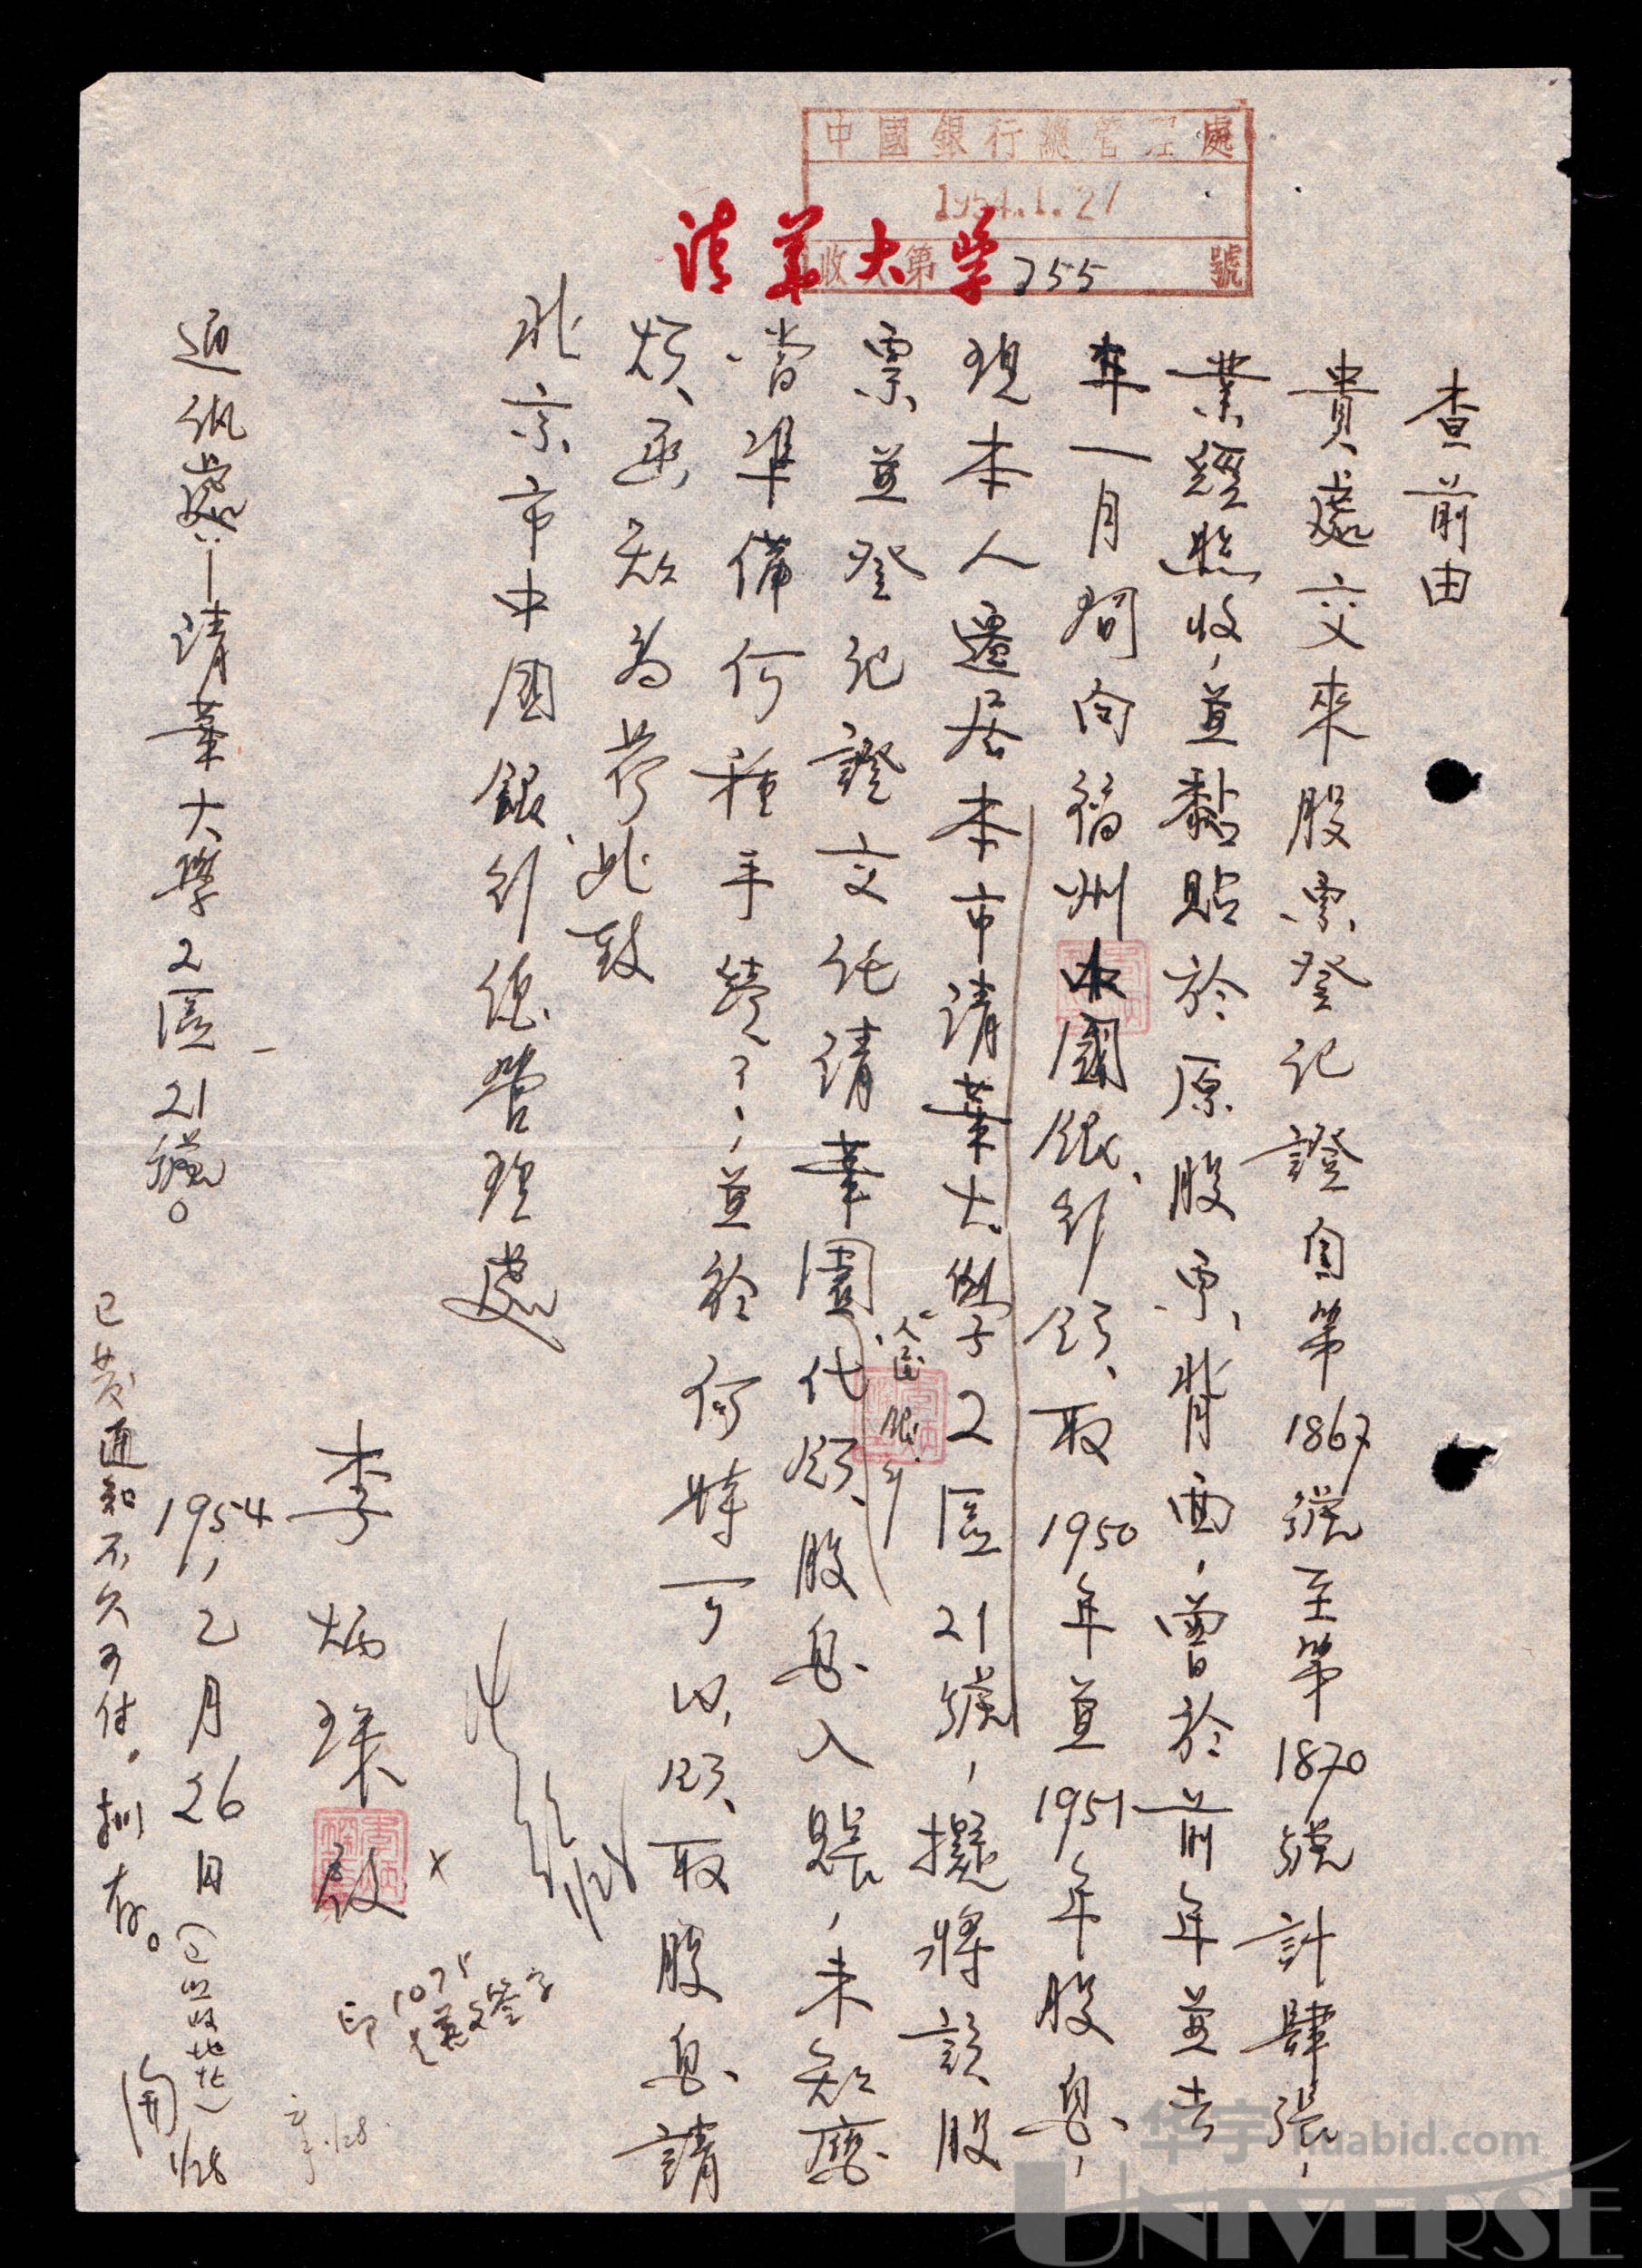 中國銀行總管理處
1954.1.27
收 第 255 號
清華大学
查前由
貴處交來股票登記證自第1867號至第1870號計肆張，
業經照收，並黏貼於原股票背面，曾於前年並去
年一月間向福州中國銀行領取1950年並1951年股息，
現本人遷居本市清華大學2區21號，擬將該股
票並登記證交託清華園人民銀行代領股息入賬，未知應
當準備何種手續？並於何時可以領取股息請
煩函知為荷此致
北京市中国銀行總管理處
李炳琛啟
1954，1月26日
通訊處：—清華大學2區21號。
已發通知不久可付。存。
1/28
華宇 huabid.com
UNIVERSE